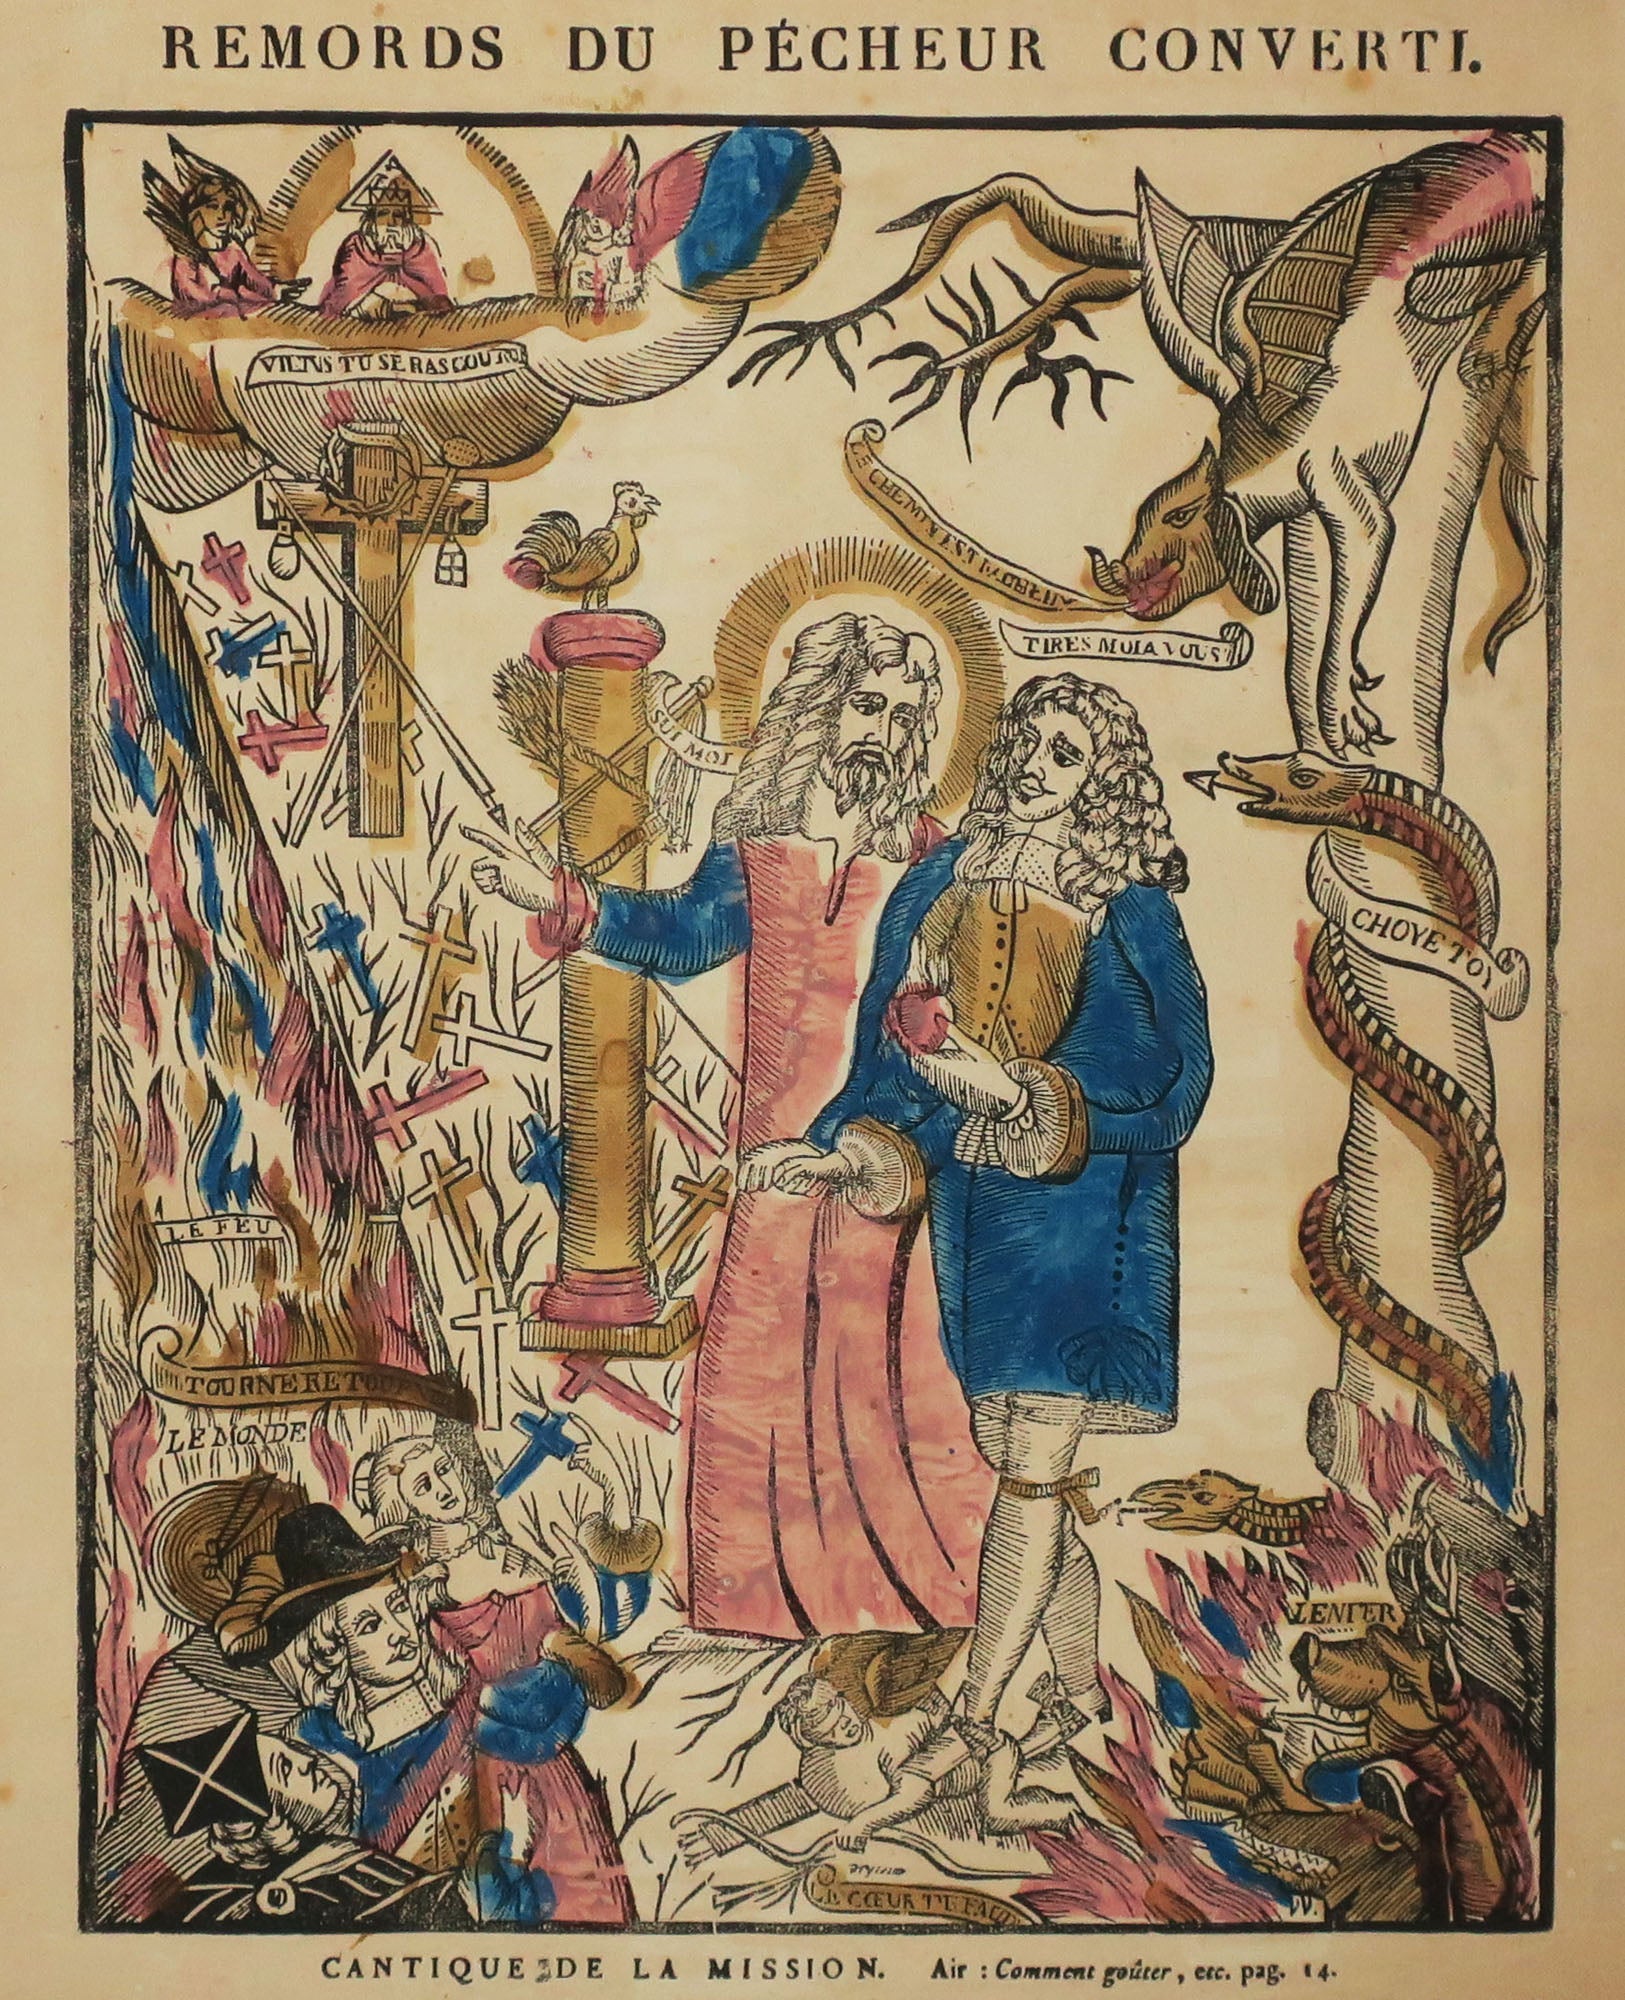 REMORDS DU PÉCHEUR CONVERTI.
VIENS TU SERAS COURON
LE CHEMIN EST
TIRES MOI A VOUS
SUI MOI
CHOYE TOY
LE FEU
TOURNE RETOURNE
LE MONDE
LENFER
LE CŒUR TE FAUT
W.
CANTIQUE DE LA MISSION. Air : Comment goûter, etc. pag. 14.